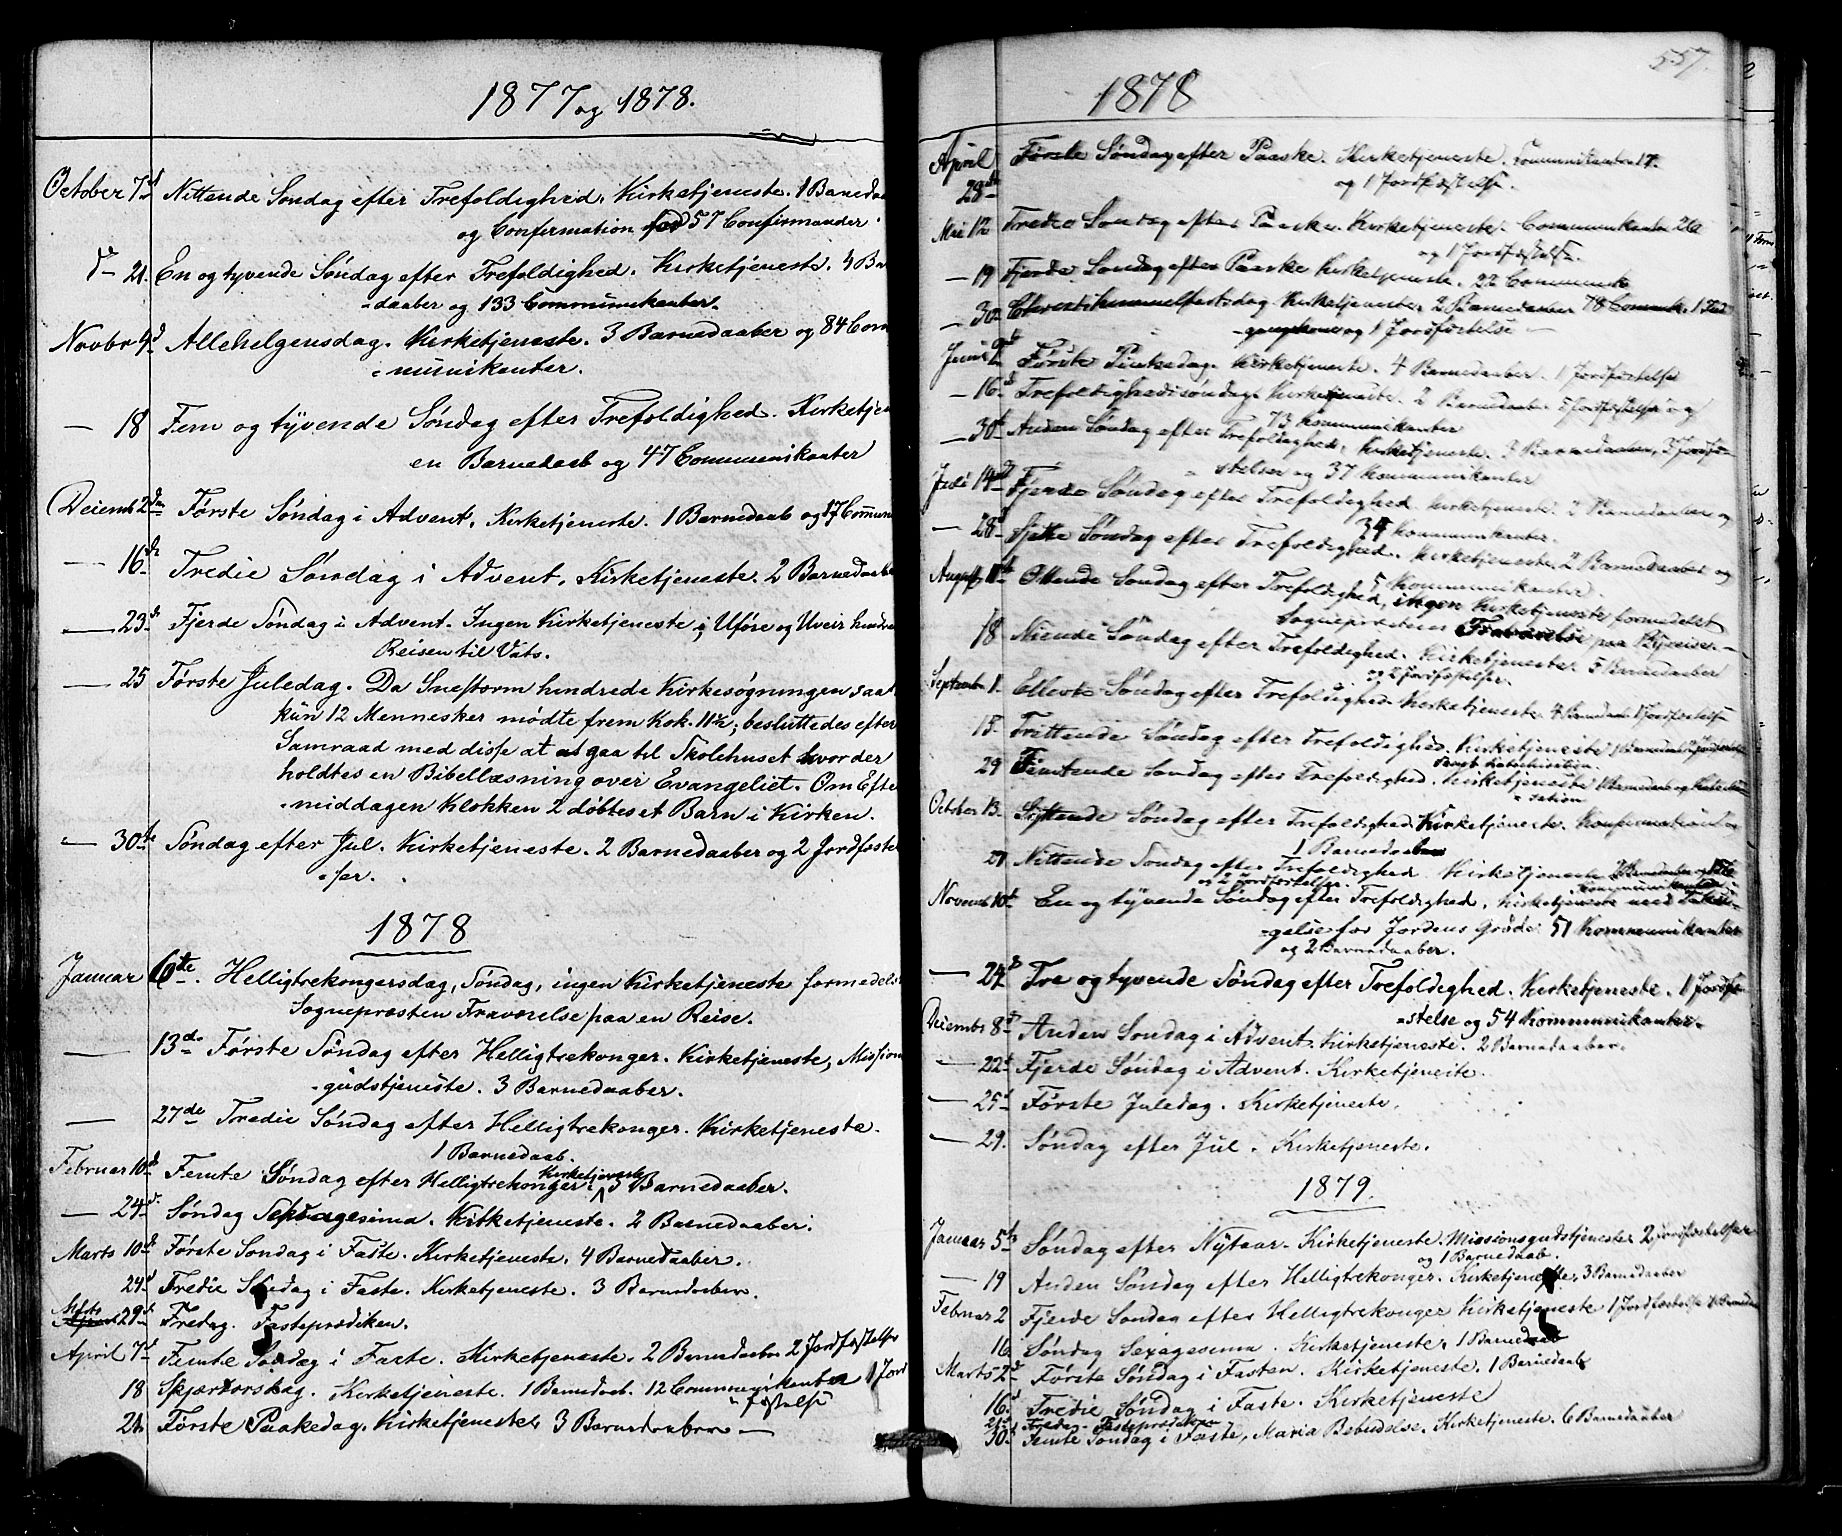 1877 og 1878.
October 7d Nittende Søndag efter Trefoldighed. Kirketjeneste. 1 Barnedaa
og Confirmation 57 Confirmander
d— 21. En og tyvende Søndag efter Trefoldighed. Kirketjeneste. 4 Bar
-daaber og 133 Communikanter.
Novbr 4d Allehelgensdag. Kirketjeneste. 3 Barnedaaber og 84 Com
-munikanter.
— 18 Fem og tyvende Søndag efter Trefoldighed. Kirketjen
en Barnedaab og 47 Communikanter
Deiemb 2den Første Søndag i Advent. Kirketjeneste. 1 Barnedaab og 17 Commun
— 16de Tredie Søndag i Advent. Kirketjeneste 2 Barnedaabe
— 23d Fjerde Søndag i Advent. Ingen Kirketjeneste, Uføre og Uveir hindre
Reisen til Vats.
— 25 Første Juledag. Da Snestorm hindrede Kirkesøgningen saa
kün 12 Mennesker mødte frem Kok. 11½; besluttedes efter
Samraad med disse at gaa til Skolehuset hvor der
holdtes en Bibellæsning over Evangeliet. Om Efte
-middagen Klokken 2 döbtes et Barn i Kirken.
— 30te Søndag efter Jul. Kirketjeneste. 2 Barnedaaber og 2 Jordfæste
-ser.
1878
Januar 6te. Helligtrekongersdag, Søndag, ingen Kirketjeneste formedels
Sognepræsten Fraværelse paa en Reise.
— 13de Første Søndag efter Helligtrekonger. Kirketjeneste, Mission
-gudstjeneste. 3 Barnedaaber.
— 27de Tredie Søndag efter Helligtrekonger. Kirketjeneste.
1 Barnedaab.
Februar 10d Femte Søndag efter Helligtrekonger. Kirketjeneste 3 Barnedaaber.
— 24d. Søndag Septuagesima. Kirketjeneste. 2 Barnedaaber.
Marts 10d Første Søndag i Faste. Kirketjeneste. 4 Barnedaaber.
24d Tredie Søndag i Faste. Kirketjeneste. 3 Barnedaaber.
Marts 29d Fredag. Fasteprædiken.
April 7d Femte Søndag i Faste. Kirketjeneste. 2 Barnedaaber 2 Jordfæstelser
18 Skjærtorsdag. Kirketjeneste. 1 Barnedaab. 12 Communikanter 1 Jord
-fæstelse
21. Første Paaskedag. Kirketjeneste, 3 Barnedaaber —
557.
1878
April 28de Første Søndag efter Paaske. Kirketjeneste. Communikanter 17.
og 1 Jordfæstelse.
Mai 12 Tredie Søndag efter Paaske. Kirketjeneste. Communikanter 26
og 1 Jordfæstelse.
— 19 Fjerde Søndag efter Paaske Kirketjeneste. 22 Communik
— 30 Christi himmelfartsdag. Kirketjeneste. 2 Barnedaaber 78 Commnk. 1
og 1 Jordfæstelse —
Juni 9d Første Pintsedag. Kirketjeneste. 4 Barnedaaber. 1 Jordfæstelse
— 16.d Trefoldighedssøndag. Kirketjeneste. 2 Barnedaaber Jordfæstelse og
73 Kommunikanter
— 30d Anden Søndag efter Trefoldighed, Kirketjeneste. 2 Barnedaaber, 3 Jordfæ
-stelser og 37 Kommunikanter
Juli 14d Fjerde Søndag efter Trefoldighed. Kirketjeneste. 2 Barnedaaber og
34 Kommunikanter.
— 28d Sjette Søndag efter Trefoldighed. Kirketjeneste. 2 Barnedaaber og
5 Kommunikanter.
August 11te Ottende Søndag efter Trefoldighed, ingen Kirketjeneste formedelst
Sognepræstens Fraværelse paa
18 Niende Søndag efter Trefoldighed. Kirketjeneste 5 Barnedaaber
og 2 Jordfæstelser.
September 1. Ellevte Søndag efter Trefoldighed. Kirketjeneste 4 Barnedaab 1 Jordfæstelse
15. Trettende Søndag efter Trefoldighed. Kirketjeneste 1 Barnedaab
samt Katechisation.
29 Femtende Søndag efter Trefoldighed. Kirketjeneste Barnedaab og Kateki
-sation
October 13. Syttende Søndag efter Trefoldighed. Kirketjeneste. Konfirmation
1 Barnedaaber
27 Nittende Søndag efter Trefoldighed. Kirketjeneste 2 Barnedaaber og
og 2 Jordfæstelser. Kommunikanter
Novemb 10d En og tyvende Søndag efter Trefoldighed, Kirketjeneste med Taksi-
-gelse for Jordens Grøde. 51 Kommunikanter
og 2 Barnedaaber.
— 24d Tre og tyvende Søndag efter Trefoldighed. Kirketjeneste. 1 Jordfæ
-stelse og 54 Kommunikanter.
Deiembr 8d Anden Søndag i Advent. Kirketjeneste. 2 Barnedaaber.
— 22d Fjerde Søndag i Advent. Kirketjeneste.
— 25d Første Juledag. Kirketjeneste.
— 29. Søndag efter Jul. Kirketjeneste.
1879.
Januar 5te Søndag efter Nÿtaar. Kirketjeneste. Missionsgudstjeneste 2 Jordfæstelser
og 1 Barnedaab.
— 19 Anden Søndag efter Helligtrekonger. Kirketjeneste, 3 Barnedaaber
Februar 2 Fjerde Søndag efter Helligtrekonger Kirketjeneste 1 Jordfæstelse Barnedaa
16. Søndag Sexagesima. Kirketjeneste, 1 Barnedaab
Marts 2d Første Søndag i Fasten. Kirketjeneste. 1 Barnedaab
16d Tredie Søndag i Faste. Kirketjeneste
21d Fredag. Fasteprædiken
30d Femte Søndag i Faste, Maria Bebudelse. Kirketjeneste. 6 Barnedaaber